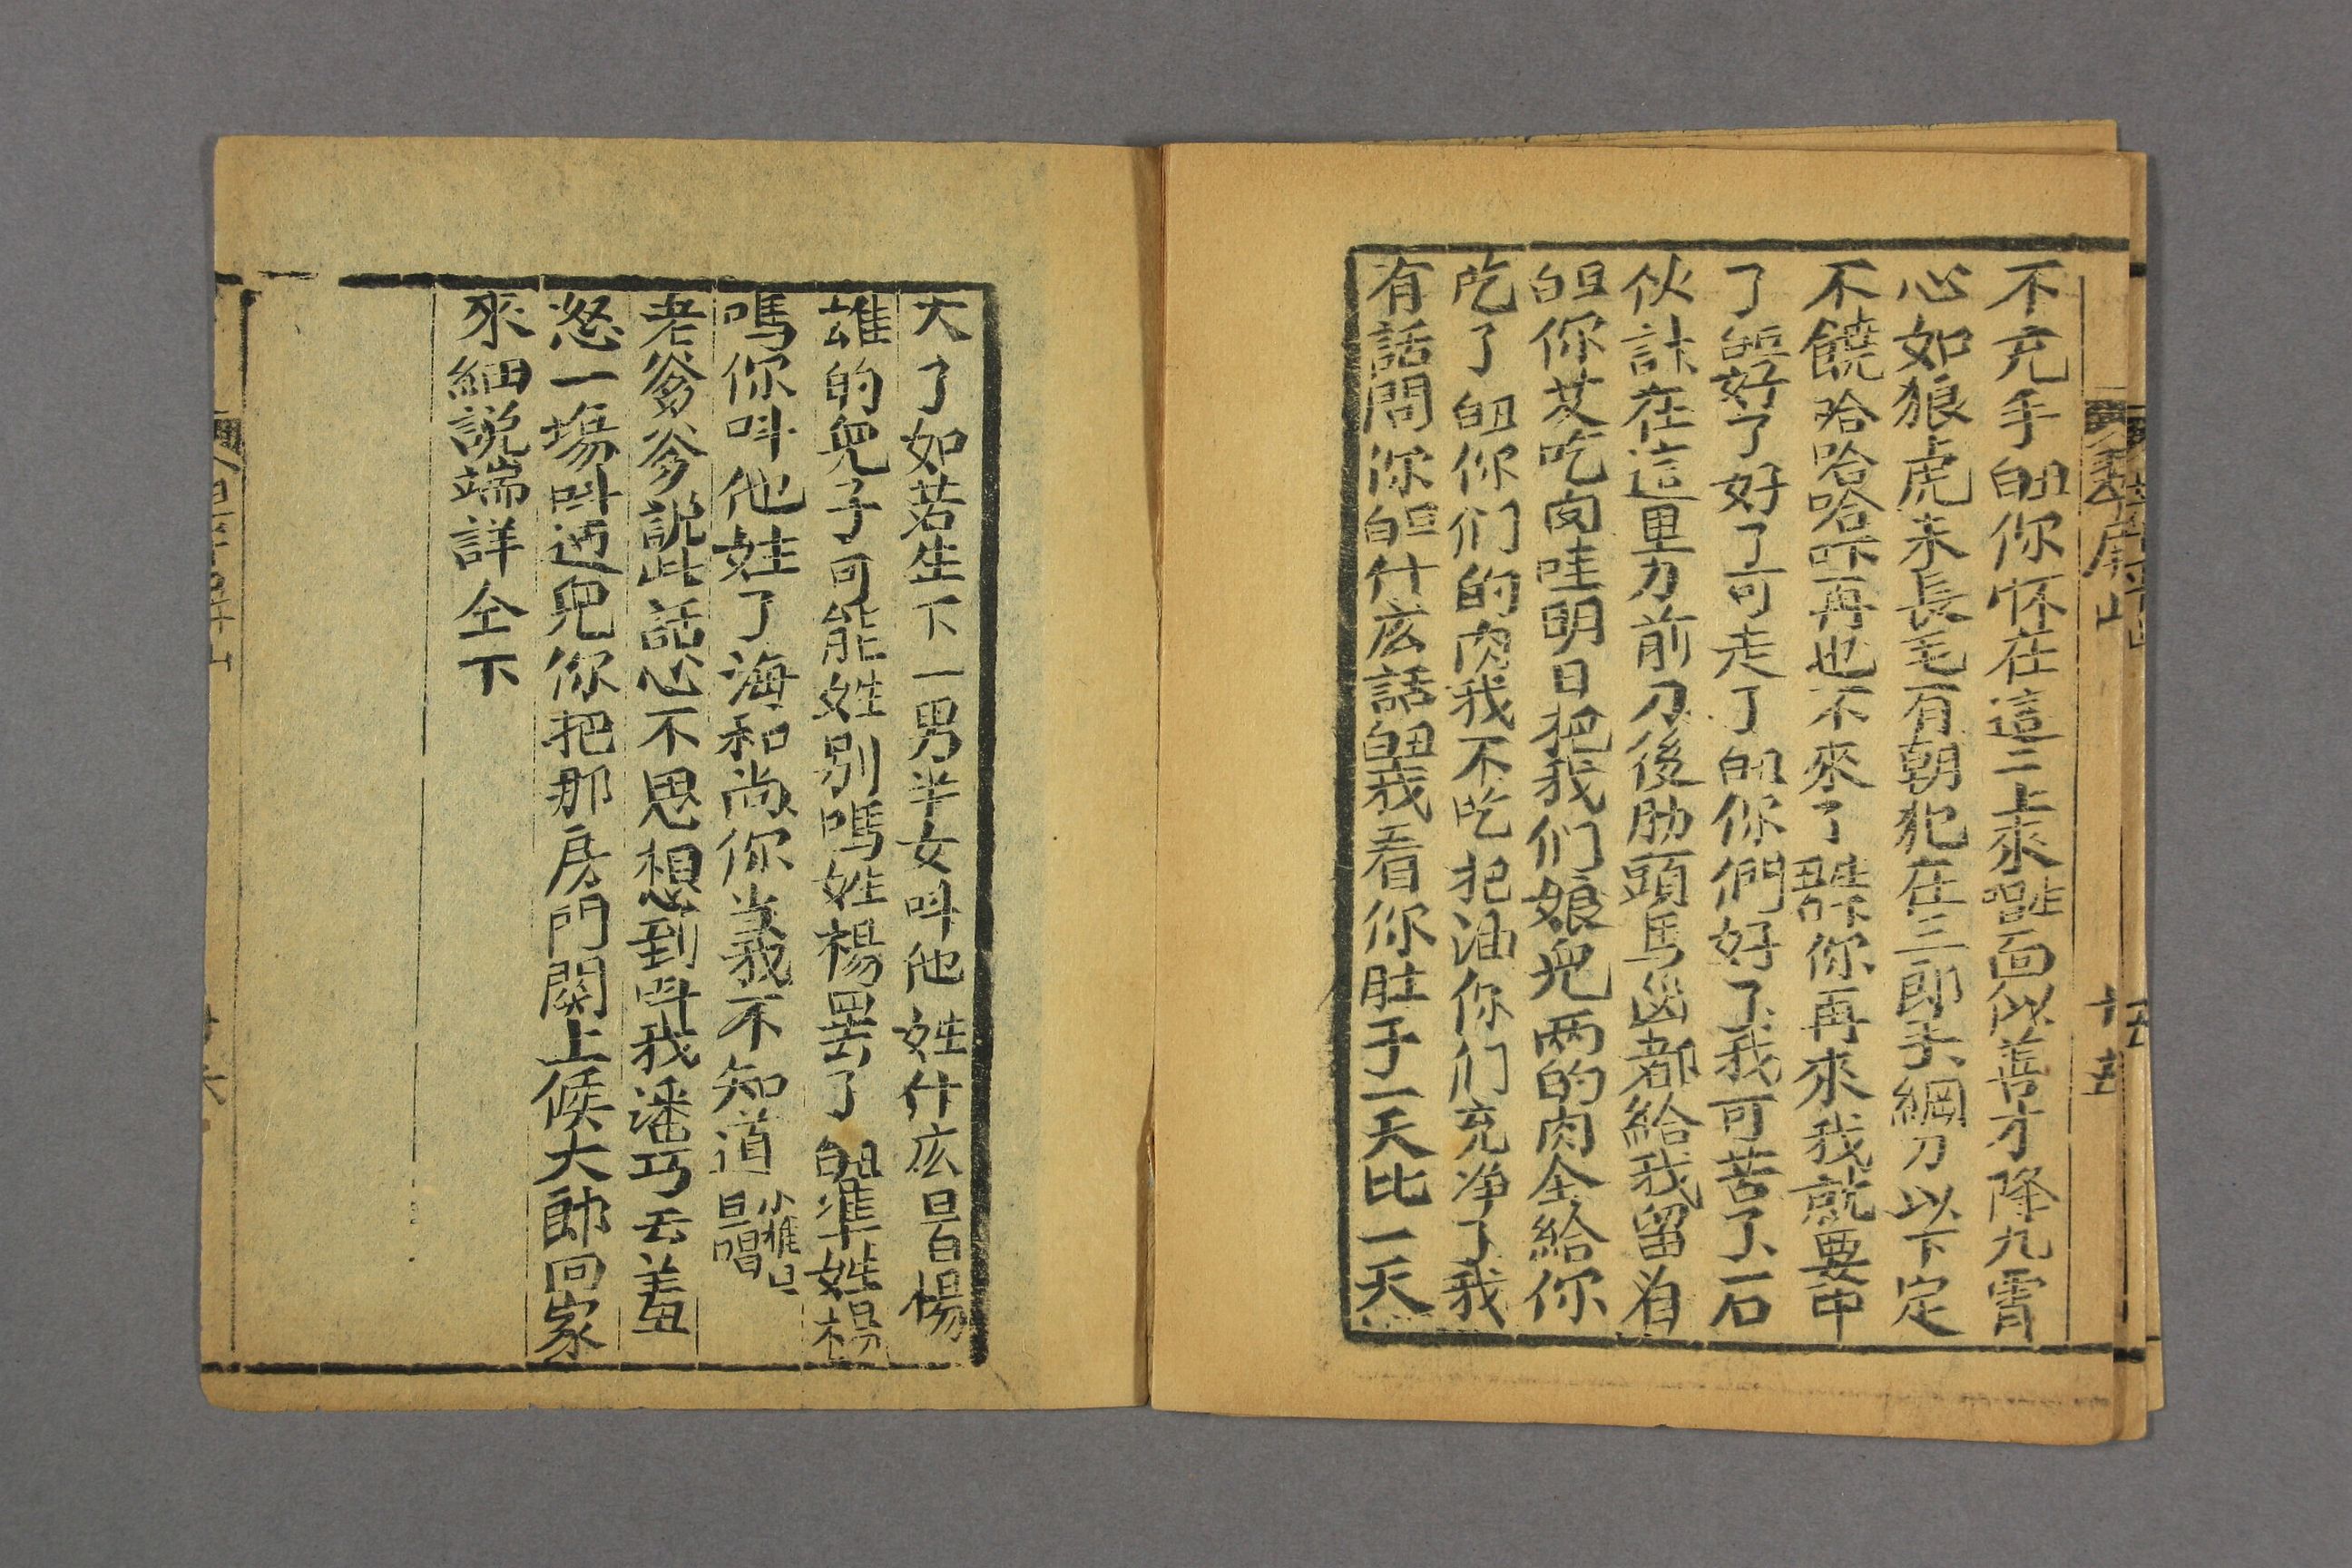 翠屏山
十五
不充手白丑你怀在這二上來唱生面似善才降九霄
心如狼虎未長毛有朝犯在三郎手綱刀以下定
不饒哈哈哈哈咔再也不來了你再來我就要申
了好了好了可走了白丑你們好了我可苦了石
伙計在這里刀前刀後肋頭馬凶都給我留着
白旦你艾吃肉哇明日把我们娘兒两的肉全給你
吃了白丑你们的肉我不吃把油你们充净了我
有話問你白旦什庅話白丑我看你肚子一天比一天
大了如若生下一男半女呌他姓什庅旦白楊
雄的兒子可能姓別嗎姓楊罢了白丑準姓楊
嗎你呌他姓了海和尚你當我不知道小推旦旦唱
老爹爹說此話心不思想到呌我潘巧云羞
怒一塲呌迎兒你把那房門関上候大郎回家
來細説端詳仝下